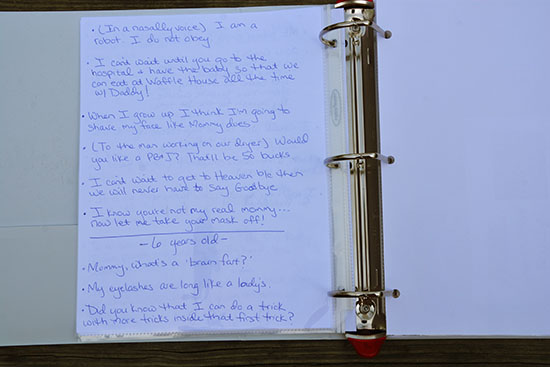 • (In a nasally voice) I am a
robot. I do not obey
• I can't wait until you go to the
hospital & have the baby so that we
can eat at Waffle House all the time
w/ Daddy!
• When I grow up I think I'm going to
shave my face like Mommy does.
• (To the man working on our dryer) Would
you like a PB&J? That'll be 50 bucks
• I can't wait to get to Heaven b/c then
we will never have to say Goodbye
• I know you're not my real mommy...
now let me take your mask off!
- 6 years old -
• Mommy, what's a 'brain fart?'
• My eyelashes are long like a lady's.
• Did you know that I can do a trick
with more tricks inside that first trick?